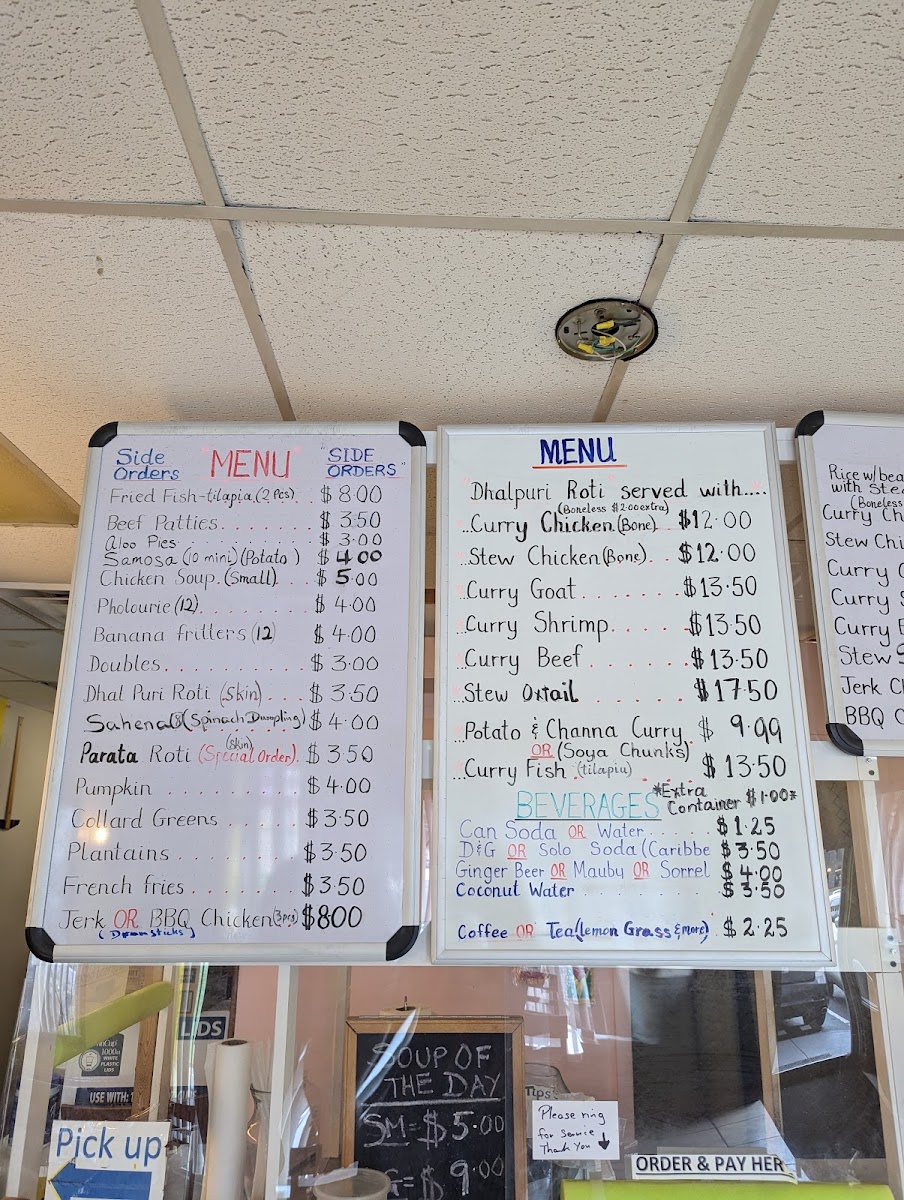 Side Orders "MENU" "SIDE ORDERS"
Fried Fish-tilapia.(2 Pcs). $8.00
Beef Patties..... $3.50
Aloo Pies....... $3.00
Samosa (10 mini)(Potato) $4.00
Chicken Soup.(small).... $5.00
Pholourie (12)......... $4.00
Banana fritters (12) $4.00
Doubles......... $3.00
Dhal Puri Roti (Skin).... $3.50
(Spinach Dumpling) $4.00
(skin)
Parata Roti (Special Order). $3.50
Pumpkin ......... $4.00
Collard Greens ...... $3.50
Plantains ......... $3.50
French fries ....... $3.50
Jerk OR BBQ Chicken(3pcs) $800
(Drumsticks)
MENU
Dhalpuri Roti served with....
(Boneless $2.00 extra)
...Curry Chicken (Bone). $12.00
...Stew Chicken (Bone).. $12.00
...Curry Goat....... $13.50
...Curry Shrimp...... $13.50
Curry Beef ....... $13.50
...Stew Oxtail ...... $17.50
...Potato & Channa Curry. $9.99
OR (Soya Chunks)
...Curry Fish (tilapia) ...... $13.50
BEVERAGES *Extra Container $1.00*
Can Soda OR Water...... $1.25
D&G OR Solo Soda (Caribbe $3.50
Ginger Beer OR Mauby OR Sorrel $4.00
Coconut Water ........ $3.50
Coffee OR Tea(lemon Grass & more) $2.25
Rice w/bea
with Ste
(Boneless
Curry Ch
Stew Chi
Curry
Curry
Curry
Stew
Jerk C
BBQ
LIDS
1000ct
WHITE
PLASTIC
LIDS
USE WITH:
SOUP OF
THE DAY
SM=$5.00
=$9.00
Please ring
for service
Thank You ↓
Pick up
ORDER & PAY HER